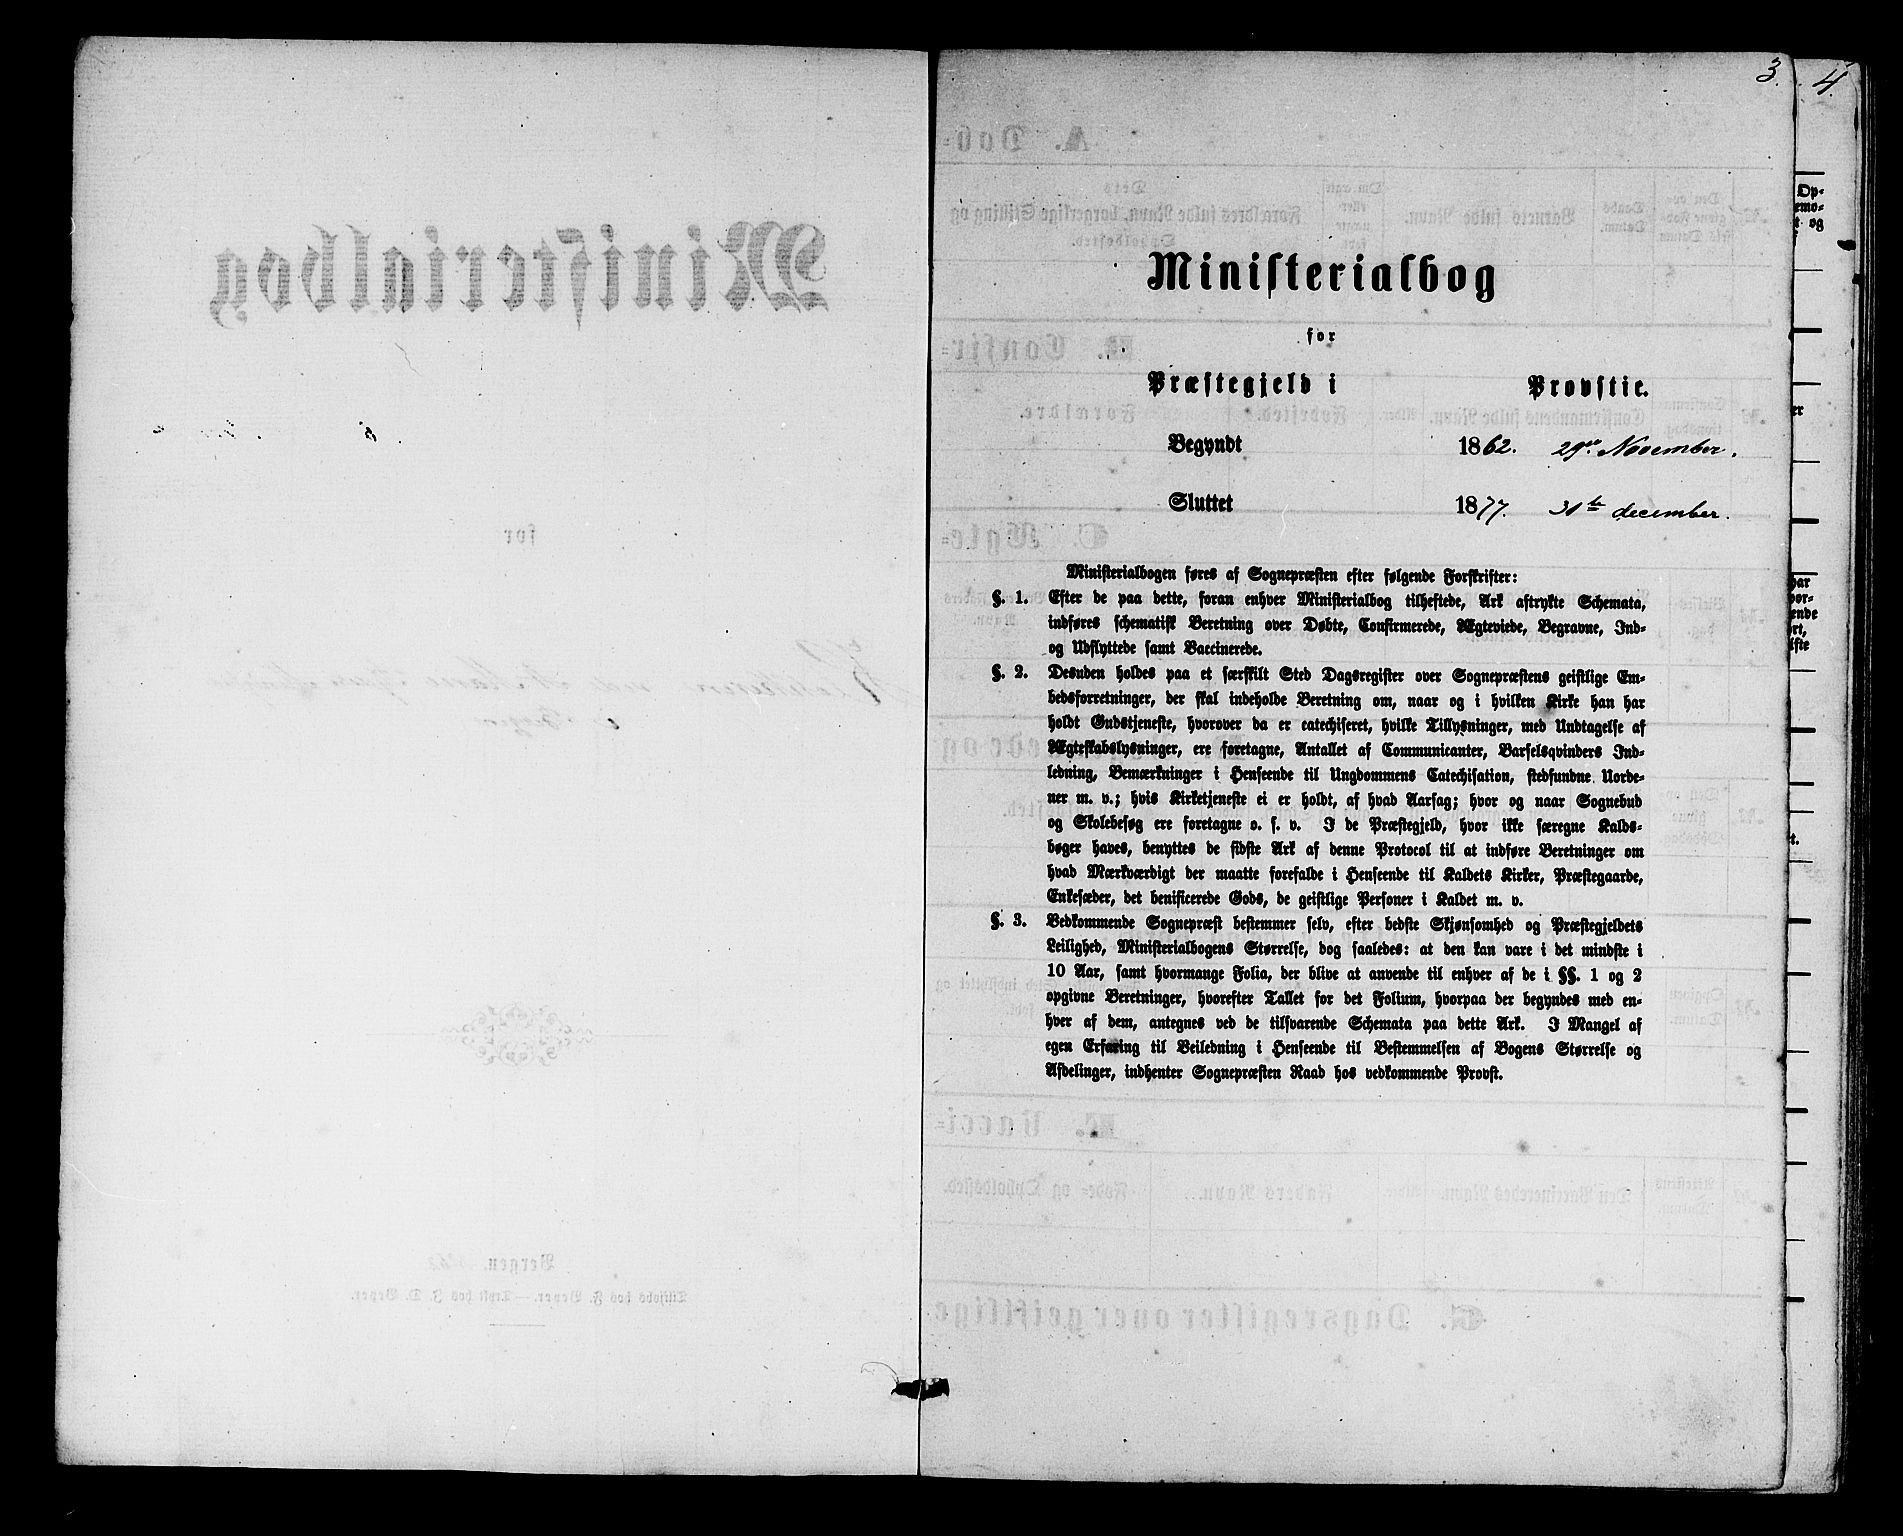 3.
4.
Ministerialbog
for
Præstegjeld i Provstie.
Begyndt 1862. 29de November.
Sluttet 1877. 31te december.
Ministerialbogen føres af Sognepræsten efter følgende Forskrifter:
§. 1. Efter de paa dette, foran enhver Ministerialbog tilheftede, Ark aftrykte Schemata,
indføres schematisk Beretning over Døbte, Confirmerede, Ægteviede, Begravne, Ind-
og Udflyttede samt Vaccinerede.
§. 2. Desuden holdes paa et særskilt Sted Dagsregister over Sognepræstens geistlige Em-
bedsforretninger, der skal indeholde Beretning om, naar og i hvilken Kirke han har
holdt Gudstjeneste, hvorover da er catechiseret, hvilke Tillysninger, med Undtagelse af
Ægteskabslysninger, ere foretagne, Antallet af Communicanter, Barselsqvinders Ind-
ledning, Bemærkninger i Henseende til Ungdommens Catechisation, stedfundne Uorde-
ner m. v.; hvis Kirketjeneste ei er holdt, af hvad Aarsag; hvor og naar Sognebud
og Skolebesøg ere foretagne o. s. v. I de Præstegjeld, hvor ikke særegne Kalds-
bøger haves, benyttes de sidste Ark af denne Protocol til at indføre Beretninger om
hvad Mærkværdigt der maatte forefalde i Henseende til Kaldets Kirker, Præstegaarde,
Enkesæder, det benificerede Gods, de geistlige Personer i Kaldet m. v.
§. 3. Vedkommende Sognepræst bestemmer selv, efter bedste Skjønsomhed og Præstegjeldets
Leilighed, Ministerialbogens Størrelse, dog saaledes: at den kan vare i det mindste i
10 Aar, samt hvormange Folia, der blive at anvende til enhver af de i §§. 1 og 2
opgivne Beretninger, hvorefter Tallet for det Folium, hvorpaa der begyndes med en-
hver af dem, antegnes ved de tilsvarende Schemata paa dette Ark. I Mangel af
egen Erfaring til Veiledning i Henseende til Bestemmelsen af Bogens Størrelse og
Afdelinger, indhenter Sognepræsten Raad hos vedkommende Provst.